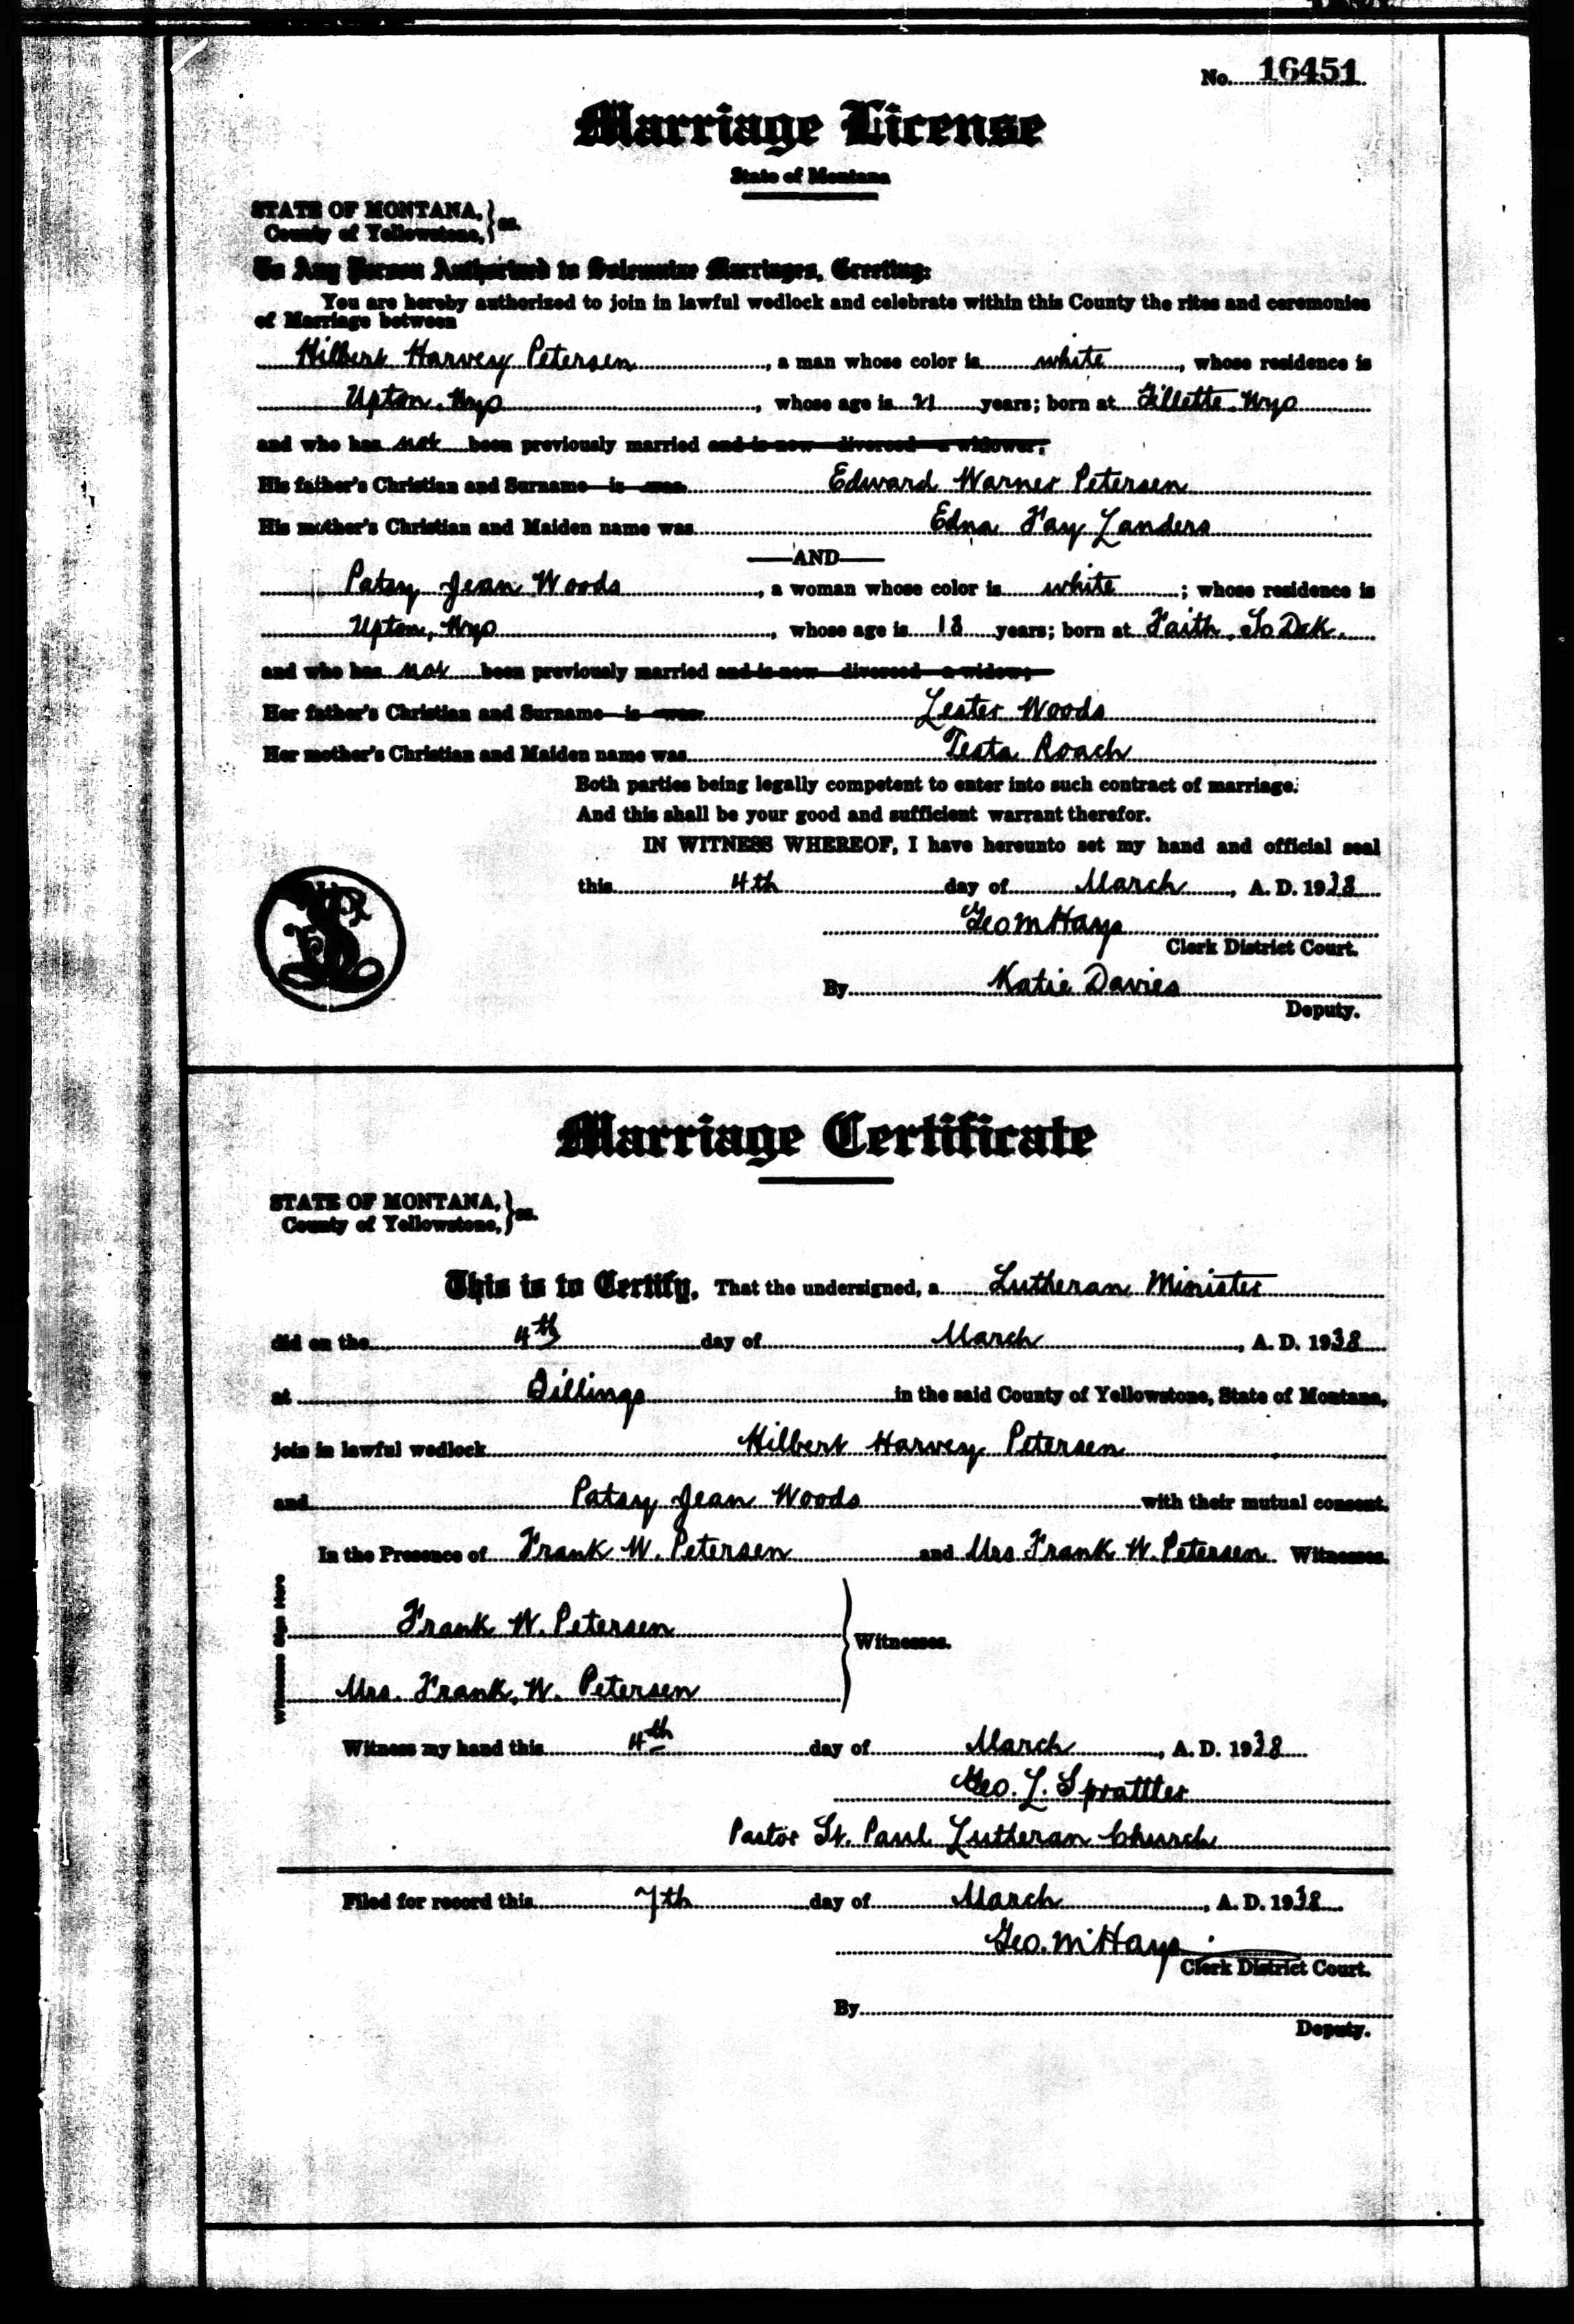 No. 16451
Marriage License
State of Montana
STATE OF MONTANA, } ss.
County of Yellowstone,
To Any Person Authorized to Solemnize Marriages, Greeting:
You are hereby authorized to join in lawful wedlock and celebrate within this County the rites and ceremonies
of Marriage between
Hilbert Harvey Petersen, a man whose color is white, whose residence is
Upton, Wyo, whose age is 21 years; born at Gillette, Wyo
and who has not been previously married and is now divorced a widower;
His father's Christian and Surname is was Edward Warner Petersen
His mother's Christian and Maiden name was Edna Fay Landers
AND
Patsy Jean Woods, a woman whose color is white; whose residence is
Upton, Wyo, whose age is 18 years; born at Faith, So Dak.
and who has not been previously married and is now divorced a widow;
Her father's Christian and Surname is was Lester Woods
Her mother's Christian and Maiden name was Testa Roach
Both parties being legally competent to enter into such contract of marriage.
And this shall be your good and sufficient warrant therefor.
IN WITNESS WHEREOF, I have hereunto set my hand and official seal
this 4th day of March, A. D. 1938
Geo M Hays
Clerk District Court.
By Katie Davies
Deputy.
Marriage Certificate
STATE OF MONTANA, } ss.
County of Yellowstone,
This is to Certify, That the undersigned, a Lutheran Minister
did on the 4th day of March, A. D. 1938
at Billings in the said County of Yellowstone, State of Montana,
join in lawful wedlock Hilbert Harvey Petersen
and Patsy Jean Woods with their mutual consent.
In the Presence of Frank W. Petersen and Mrs Frank W. Petersen Witnesses.
Witnesses Sign Here
Frank W. Petersen
Witnesses.
Mrs. Frank W. Petersen
Witness my hand this 4th day of March, A. D. 1938
Geo. L. Sprattler
Pastor St. Paul Lutheran Church
Filed for record this 7th day of March, A. D. 1938
Geo. M Hays
Clerk District Court.
By
Deputy.